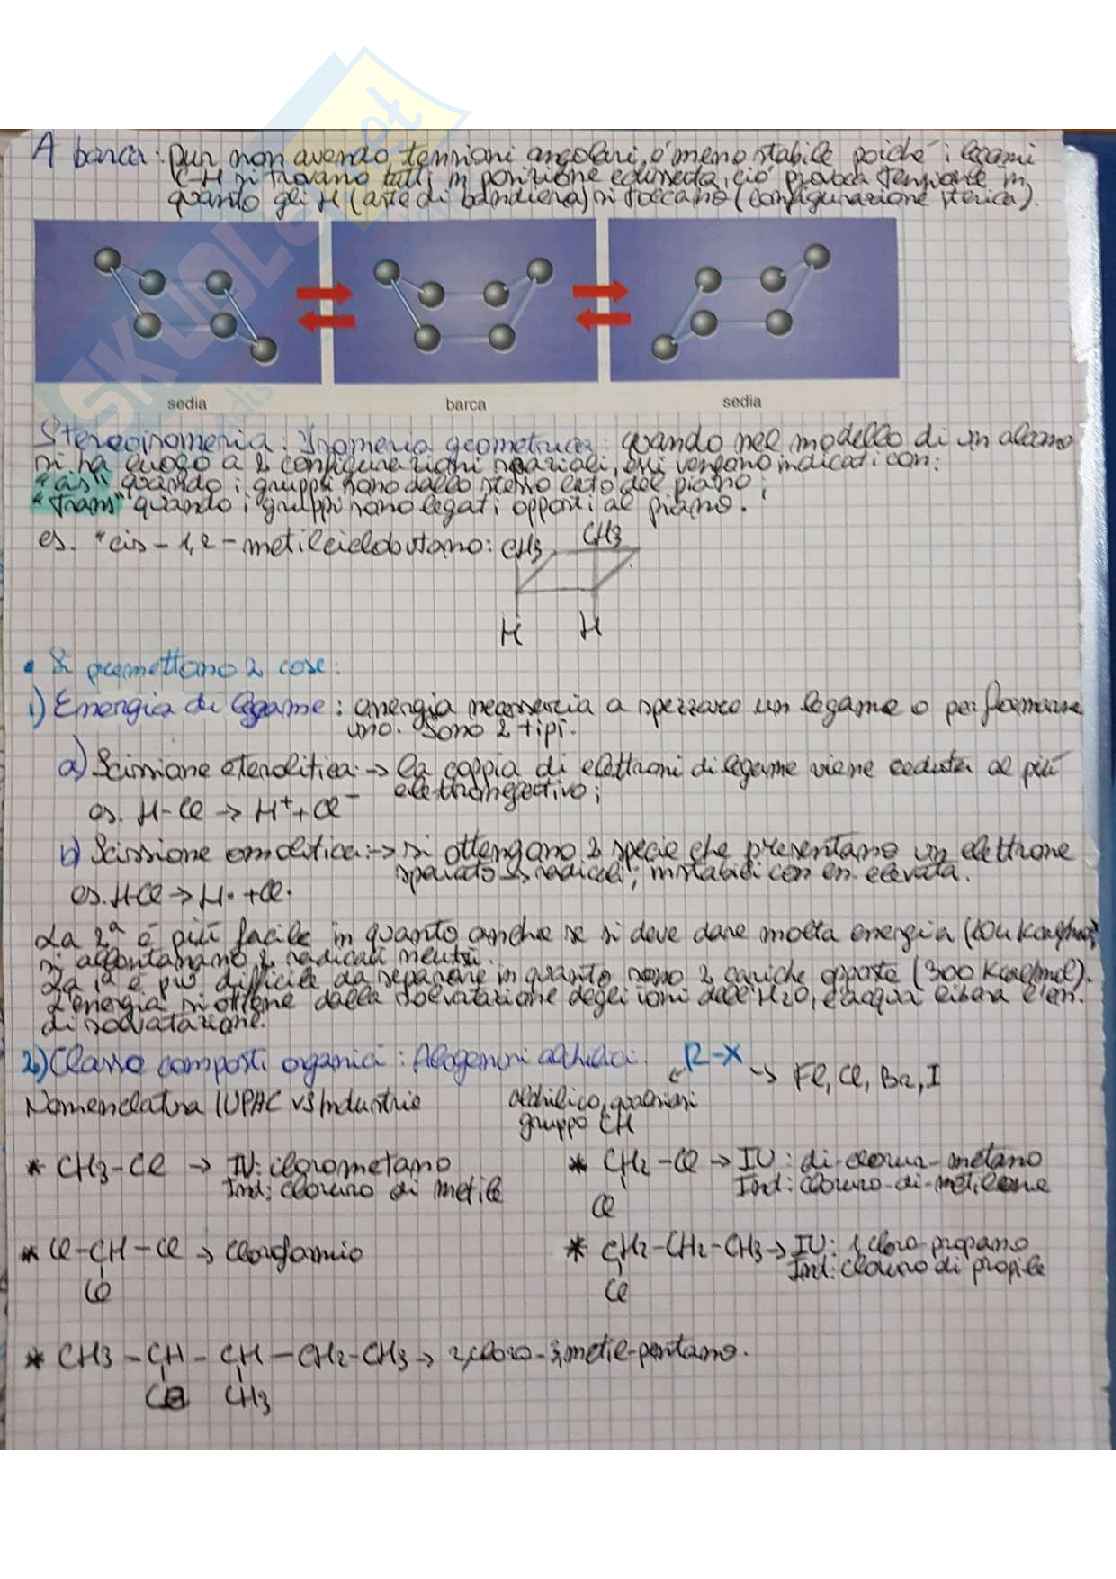 A barca: pur non avendo tensioni angolari, è meno stabile poiché i legami
C-H si trovano tutti in posizione eclissata, ciò provoca tensione in
quanto gli H (aste di bandiera) si toccano (configurazione sterica).
SKUOLA.net
sedia barca sedia
Stereoisomeria. Isomeria geometrica: quando nel modello di un alcano
si ha luogo a 2 configurazioni spaziali, essi vengono indicati con:
"cis" quando i gruppi sono dallo stesso lato del piano;
"Trans" quando i gruppi sono legati opposti al piano.
es. "cis-1,2-metilciclobutano: CH3 CH3
H H
• Si premettono 2 cose:
1) Energia di legame: energia necessaria a spezzare un legame o per formarne
uno. Sono 2 tipi.
a) Scissione eterolitica: → la coppia di elettroni di legame viene ceduta al più
elettronegativo;
es. H-Cl → H⁺ + Cl⁻
b) Scissione omolitica: → si ottengono 2 specie che presentano un elettrone
spaiato → radicali; instabili con en. elevata.
es. HCl → H· + Cl·
La 2ª è più facile in quanto anche se si deve dare molta energia
si allontanano 2 radicali neutri.
La 1ª è più difficile da separare in quanto sono 2 cariche opposte (300 Kcal/mol).
L'energia si ottiene dalla solvatazione degli ioni dell'H2O, l'acqua libera l'en.
di solvatazione.
2) Classe composti organici: Alogenuri alchilici. R-X → Fl, Cl, Br, I
Nomenclatura IUPAC vs Industrie alchilico, qualsiasi
gruppo CH
* CH3-Cl → IU: clorometano * CH2-Cl → IU: di-cloruro-metano
Ind: cloruro di metile Ind: cloruro-di-metilene
Cl
* Cl-CH-Cl → Cloroformio * CH2-CH2-CH3 → IU: 1 cloro-propano
Ind: cloruro di propile
Cl Cl
* CH3-CH-CH-CH2-CH3 → 2,cloro-3,metil-pentano.
Cl CH3